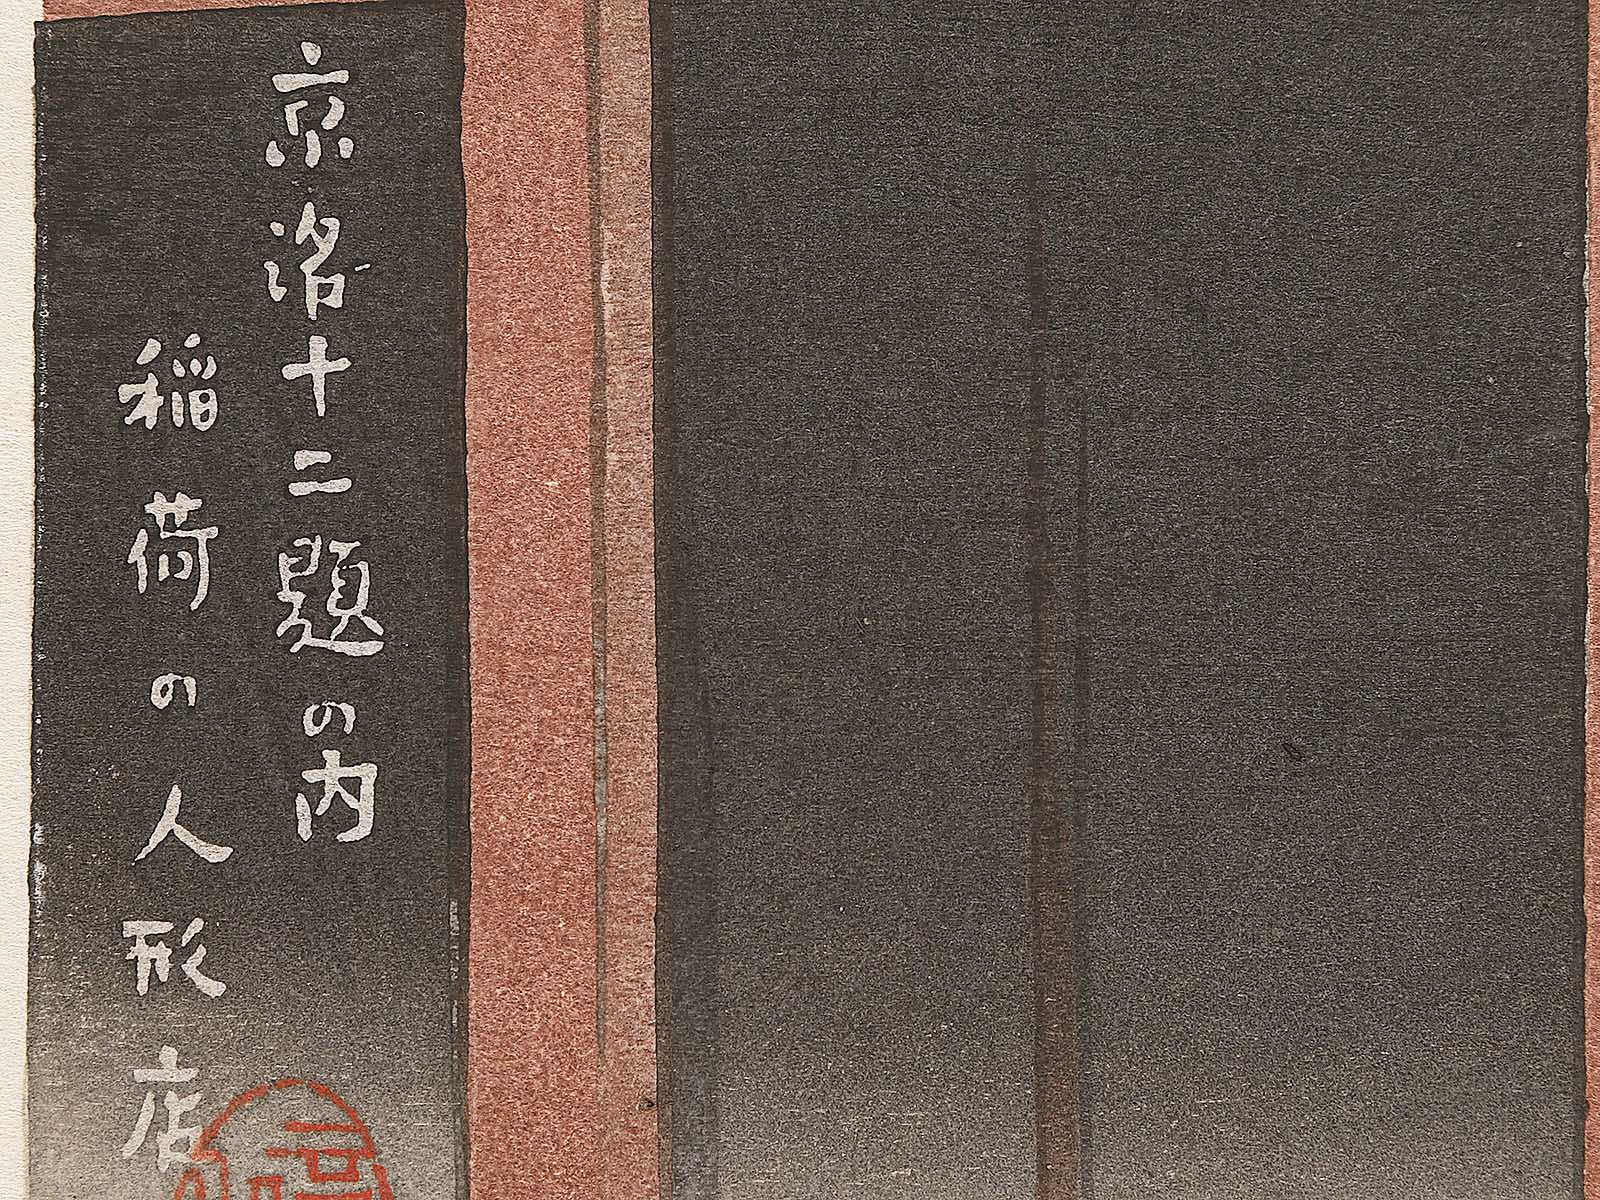 京洛十二題の内
稲荷の人形店